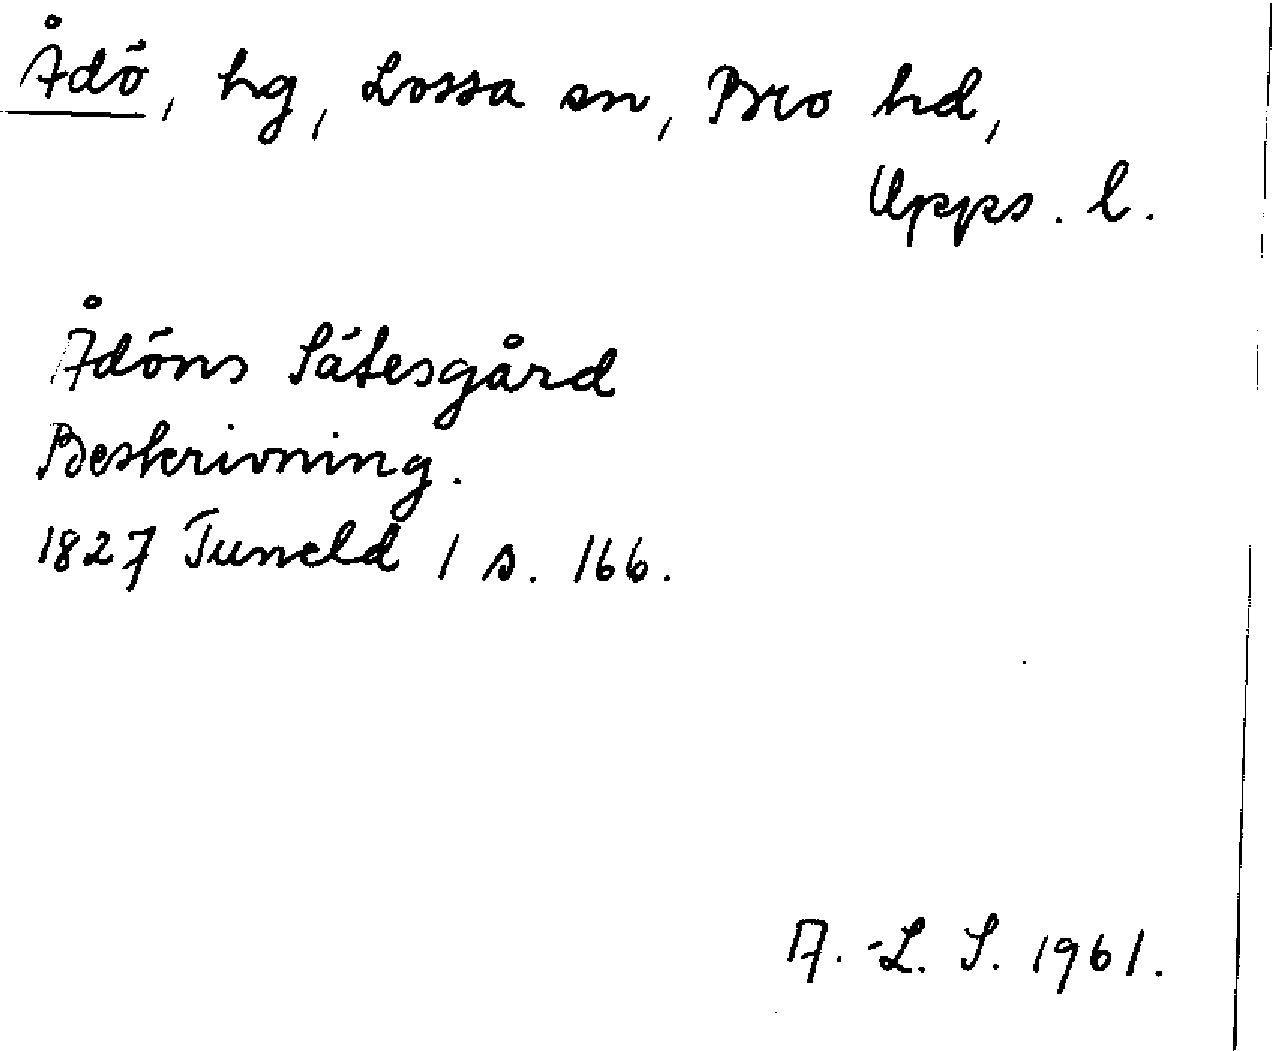 Ådö, hg, Lossa sn, Bro hd,
Upps. l.
Ådöns Sätesgård
Beskrivning.
1827 Tuneld 1 s. 166.
A.-L. S. 1961.